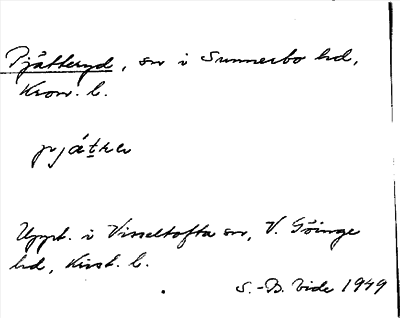 Pjätteryd, sn i Sunnerbo hd,
Kron. l.
pjätker
Uppt. i Visseltofta sn, V. Göinge
hd, Krist. l.
S.-B. Vide 1949